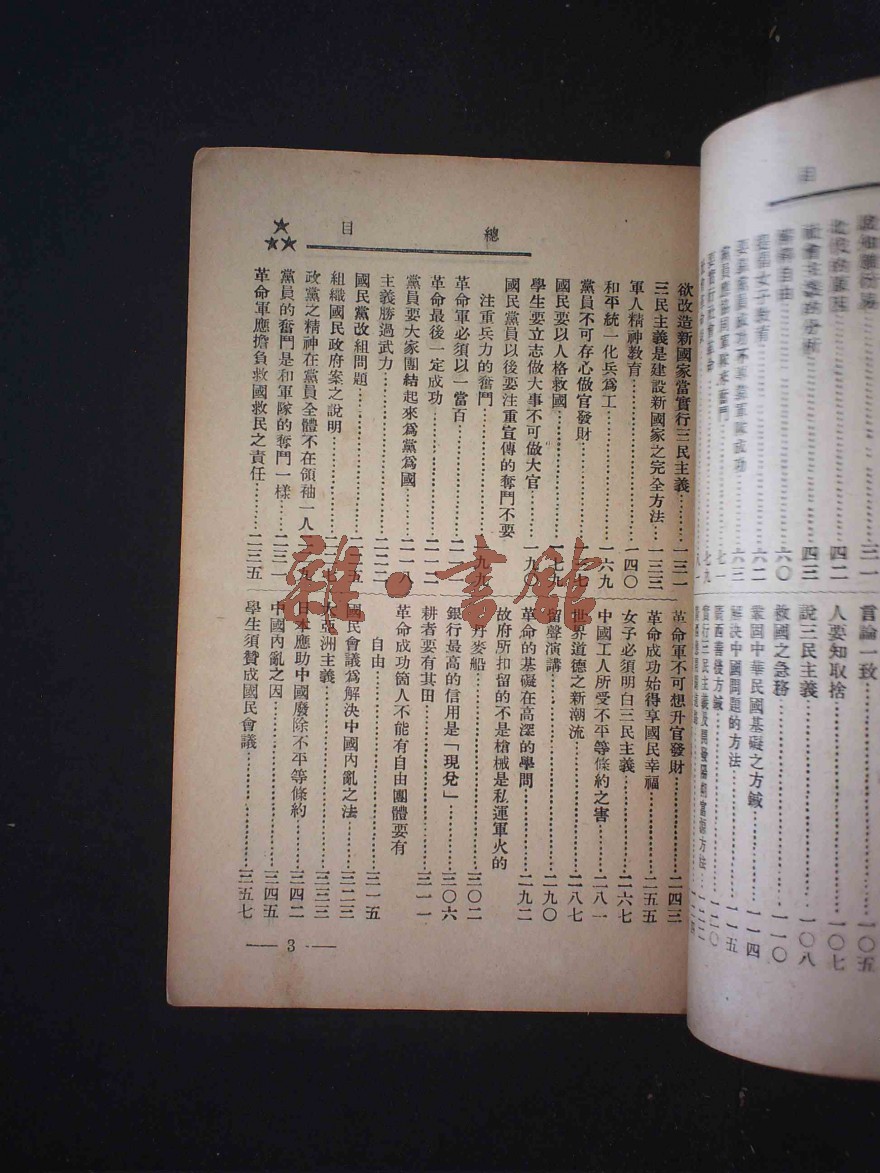 目
三一
四二
社會主義的分析……四三
自由……六〇
提倡女子教育……六二
要靠黨員成功不專靠軍隊成功……六三
黨員應協同軍隊來奮鬥……七一
七九
言論一致……一〇五
人要知取捨……一〇七
說三民主義……一〇八
救國之急務……一一〇
鞏固中華民國基礎之方鍼……一一四
解決中國問題的方法……一一五
廣西善後方鍼……一二〇
實行三民主義及開發陽朔富源方法……一二二
總目
欲改造新國家當實行三民主義……一三一
三民主義是建設新國家之完全方法……一三三
軍人精神教育……一四〇
和平統一化兵爲工……一六九
黨員不可存心做官發財……七
國民要以人格救國……七九
學生要立志做大事不可做大官……一九〇
國民黨員以後要注重宣傳的奮鬥不要
注重兵力的奮鬥……九九
革命軍必須以一當百……二
革命最後一定成功……二一二
黨員要大家團結起來爲黨爲國……二一八
主義勝過武力……二二二
國民黨改組問題……二五
組織國民政府案之說明……七
政黨之精神在黨員全體不在領袖一人……九
黨員的奮鬥是和軍隊的奪鬥一樣……二三一
革命軍應擔負救國救民之責任……二三五
革命軍不可想升官發財……二四三
革命成功始得享國民幸福……二五五
女子必須明白三民主義……二六七
中國工人所受不平等條約之害……二八一
世界道德之新潮流……二八七
留聲演講……二九〇
革命的基礎在高深的學問……二九二
故府所扣留的不是槍械是私運軍火的
丹麥船……三〇二
銀行最高的信用是「現兌」……三〇六
耕者要有其田……三一一
革命成功箇人不能有自由團體要有
自由……三一五
國民會議爲解決中國內亂之法……三二三
大亞洲主義……三三三
日本應助中國廢除不平等條約……三四二
中國內亂之因……三四五
學生須贊成國民會議……三五七
3
雜·書館